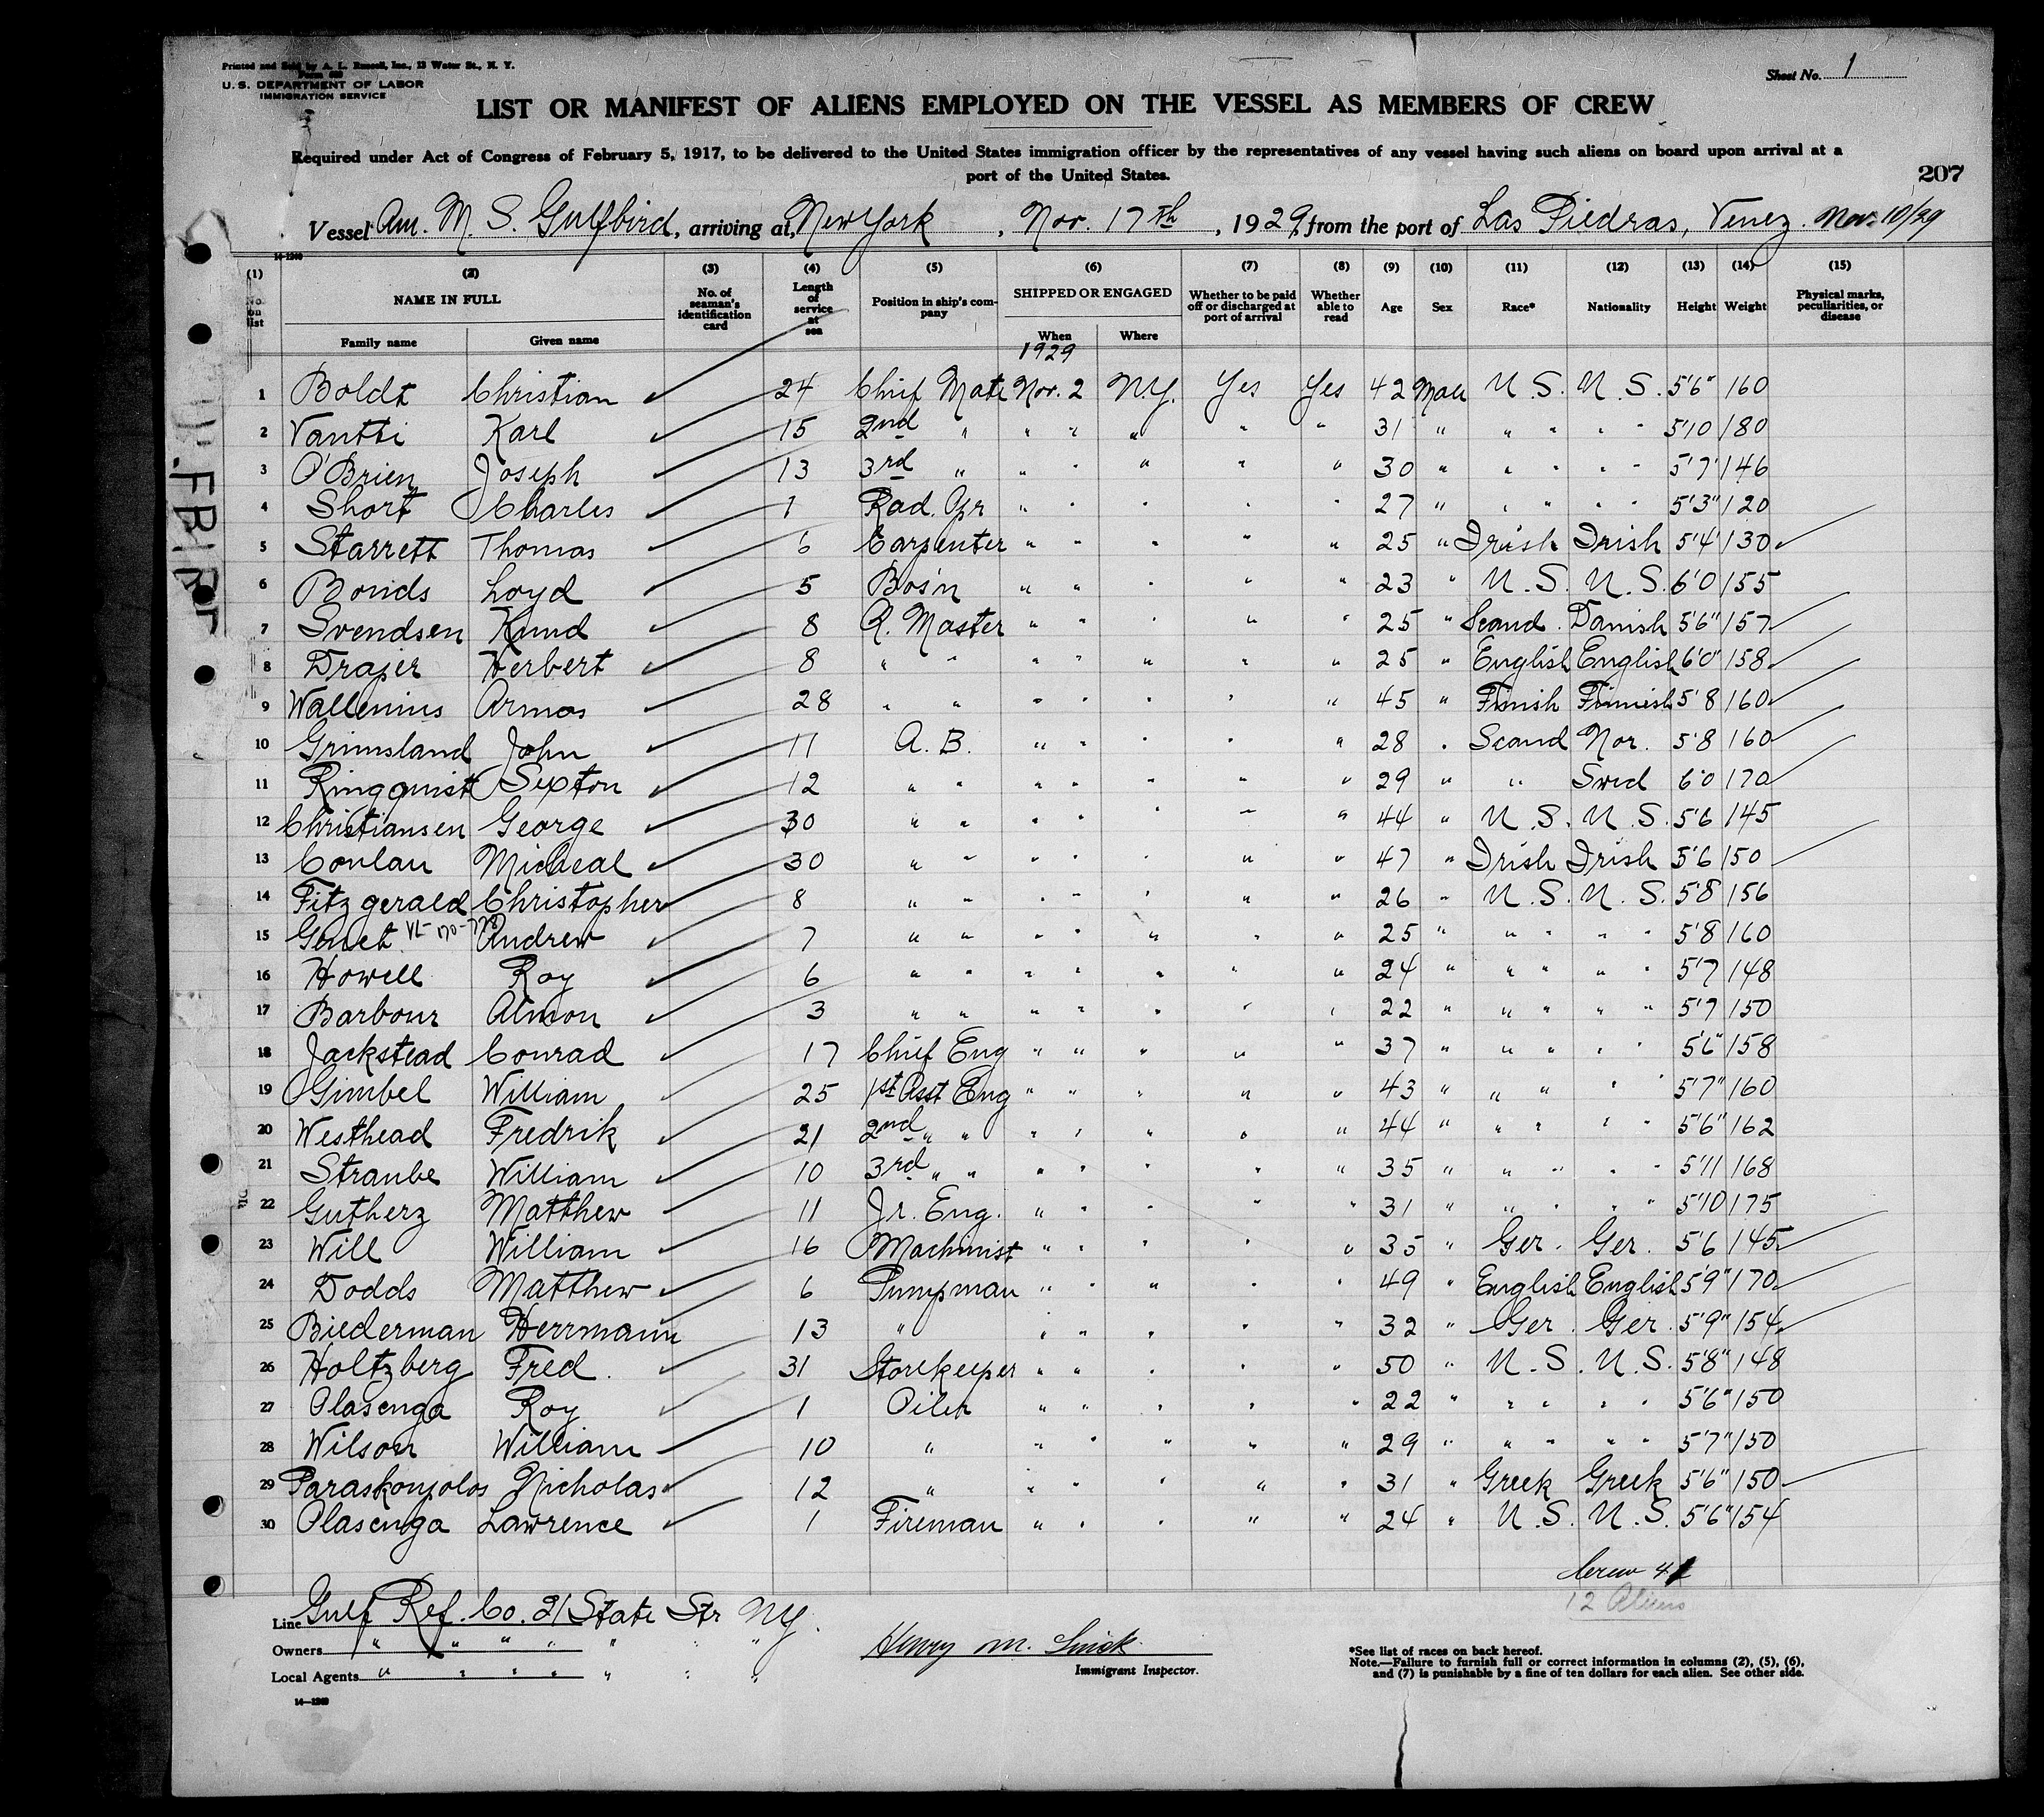 Printed and Sold by A. L. Russell, Inc., 13 Water St., N. Y.
U. S. DEPARTMENT OF LABOR
IMMIGRATION SERVICE
Sheet No. 1
LIST OR MANIFEST OF ALIENS EMPLOYED ON THE VESSEL AS MEMBERS OF CREW
Required under Act of Congress of February 5, 1917, to be delivered to the United States immigration officer by the representatives of any vessel having such aliens on board upon arrival at a
port of the United States.
207
Vessel Am. M. S. Gulfbird, arriving at, New York, Nov. 17th, 1929, from the port of Las Piedras, Venez. Nov. 10/29
(1) (2) (3) (4) (5) (6) (7) (8) (9) (10) (11) (12) (13) (14) (15)
No. on list NAME IN FULL Family name Given name No. of seaman's identification card Length of service at sea Position in ship's company SHIPPED OR ENGAGED When Where Whether to be paid off or discharged at port of arrival Whether able to read Age Sex Race* Nationality Height Weight Physical marks, peculiarities, or disease
1929
1 Boldt Christian 24 Chief Mate Nov. 2 N.Y. Yes Yes 42 Male U.S. U.S. 5'6" 160
2 Vantti Karl 15 2nd " " " " " " 31 " " " " " 5'10 180
3 O'Brien Joseph 13 3rd " " " " " " 30 " " " " " 5'7" 146
4 Short Charles 1 Rad. Opr " " " " " 27 " " " " " 5'3" 120
5 Starrett Thomas 6 Carpenter " " " " " 25 " Irish Irish 5'4" 130
6 Bonds Loyd 5 Bos'n " " " " " 23 " U.S. U.S. 6'0 155
7 Svendsen Knud 8 Q. Master " " " " " 25 " Scand. Danish 5'6" 157
8 Draper Herbert 8 " " " " " " " 25 " English English 6'0" 158
9 Wallenius Armas 28 " " " " " " " 45 " Finish Finnish 5'8 160
10 Grimsland John 11 A.B. " " " " " 28 " Scand Nor. 5'8 160
11 Ringquist Sexton 12 " " " " " " " 29 " " Swed 6'0 170
12 Christiansen George 30 " " " " " " " 44 " U.S. U.S. 5'6 145
13 Conlan Micheal 30 " " " " " " " 47 " Irish Irish 5'6 150
14 Fitzgerald Christopher 8 " " " " " " " 26 " U.S. U.S. 5'8 156
15 Andrew 7 " " " " " " " 25 " " " " " 5'8 160
16 Howell Roy 6 " " " " " " " 24 " " " " " 5'7 148
17 Barbour Almon 3 " " " " " " " 22 " " " " " 5'7 150
18 Jackstead Conrad 17 Chief Eng " " " " " 37 " " " " " 5'6" 158
19 Gimbel William 25 1st Asst Eng " " " " " 43 " " " " " 5'7" 160
20 Westhead Fredrik 21 2nd " " " " " " " 44 " " " " " 5'6" 162
21 Straube William 10 3rd " " " " " " " 35 " " " " " 5'11 168
22 Gutherz Matthew 11 Jr. Eng. " " " " " 31 " " " " " 5'10 175
23 Will William 16 Machinist " " " " " 35 " Ger. Ger. 5'6 145
24 Dodds Matthew 6 Pumpman " " " " " 49 " English English 5'9" 170
25 Biederman Herrmann 13 " " " " " " 32 " Ger. Ger. 5'9" 154
26 Holtzberg Fred. 31 Storekeeper " " " " " 50 " U.S. U.S. 5'8" 148
27 Olasenga Roy 1 Oiler " " " " " 22 " " " " " 5'6" 150
28 Wilson William 10 " " " " " " 29 " " " " " 5'7" 150
29 Paraskopolos Nicholas 12 " " " " " " 31 " Greek Greek 5'6" 150
30 Olasenga Lawrence 1 Fireman " " " " " 24 " U.S. U.S. 5'6" 154
Crew 41
12 Aliens
Line Gulf Ref. Co. 21 State Str NY.
Owners " " " " " " "
Local Agents " " " " " " "
Henry M.
Immigrant Inspector.
*See list of races on back hereof.
Note.—Failure to furnish full or correct information in columns (2), (5), (6),
and (7) is punishable by a fine of ten dollars for each alien. See other side.
14—1240